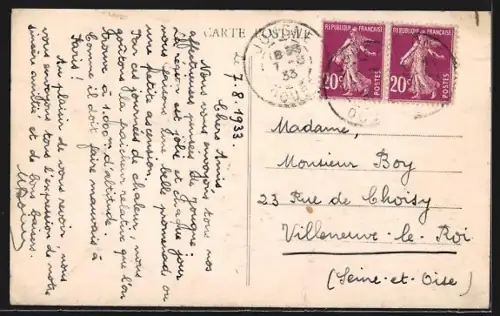 CARTE POSTALE
le 7.8.1933
Chers Amis
Nous vous envoyons tous nos
affectueuses pensées de Jougne!
La région est jolie et chaque jour
nous faisons une belle promenade, ou
une petite ascension.
Par ces journées de chaleur, nous
goûtons la fraîcheur relative que l'on
trouve à 1.000m d'altitude.
Comme il doit faire mauvais à
Paris!
Au plaisir de vous revoir, nous
vous envoyons tous l'expression de notre
sincère amitié et de bons baisers.
JOUGNE
7-8
33
DOUBS
REPUBLIQUE FRANÇAISE
20c
POSTES
REPUBLIQUE FRANÇAISE
20c
POSTES
Madame,
Monsieur Boy
23 Rue de Choisy
Villeneuve-le-Roi
(Seine-et-Oise)